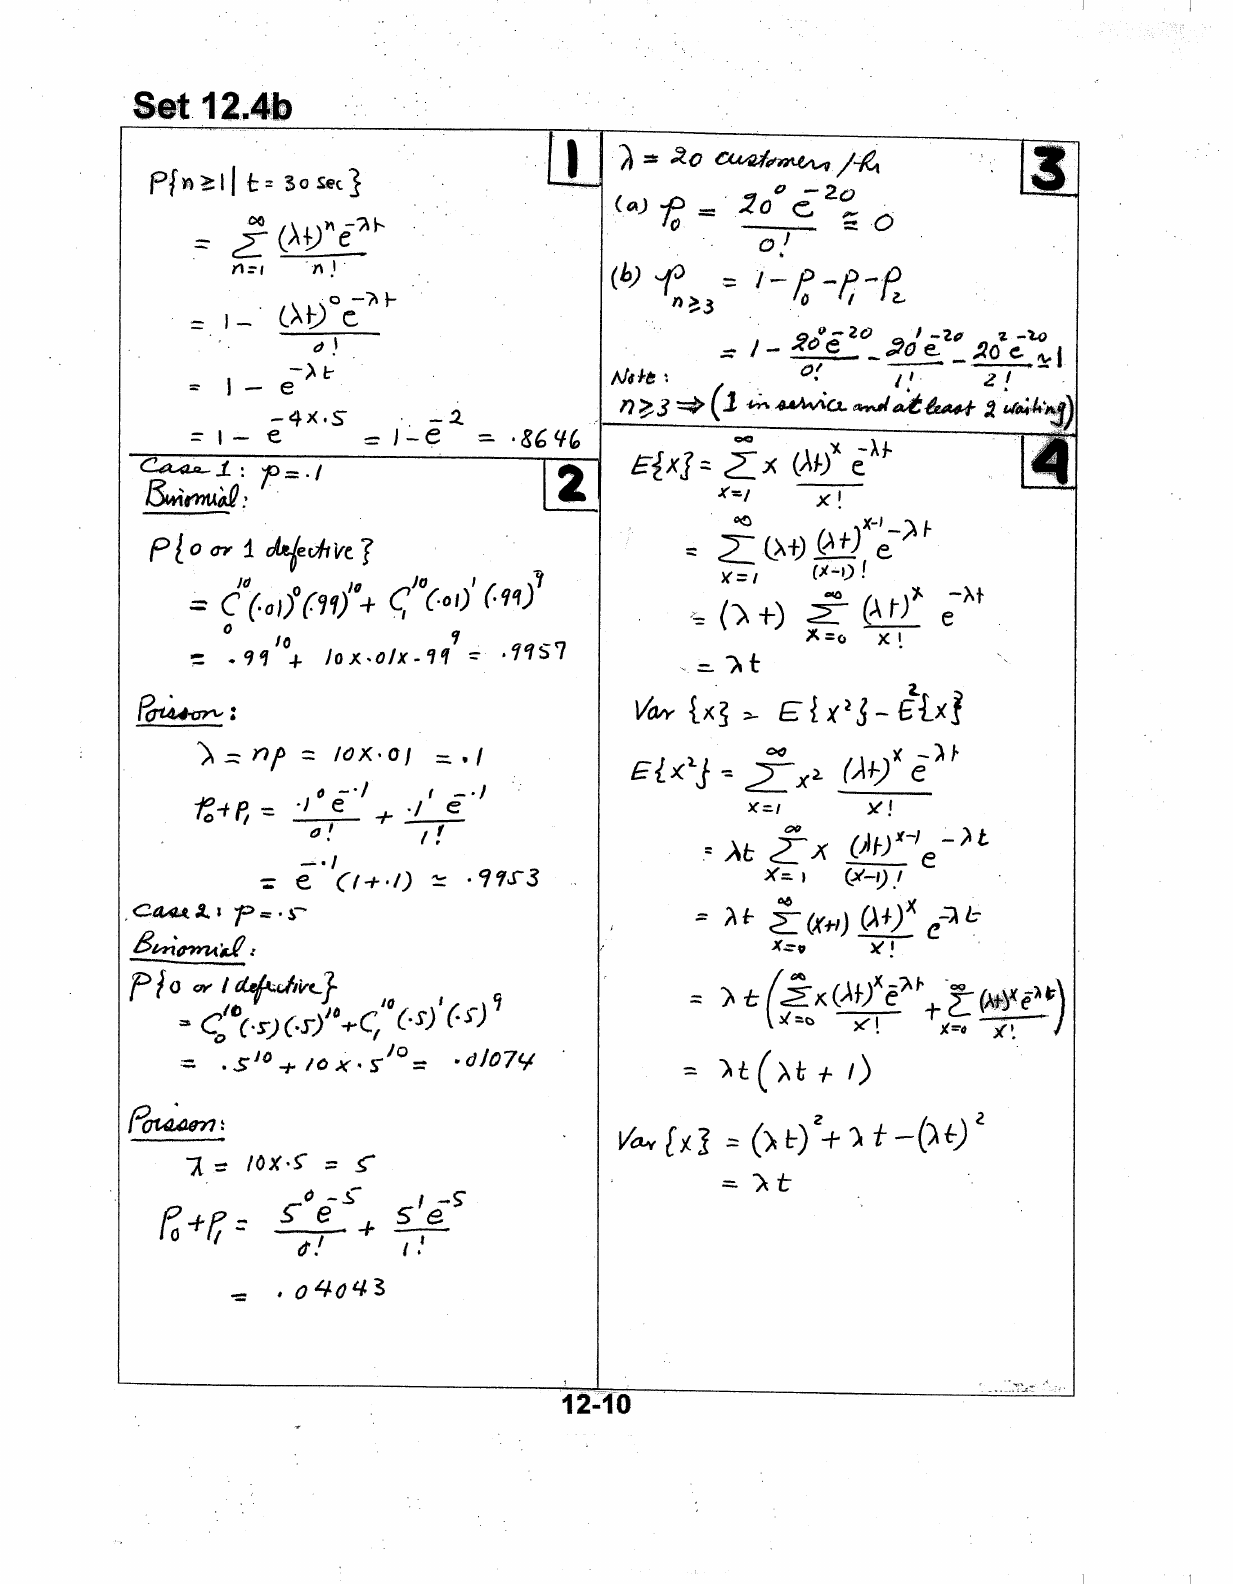 Set 12.4b
1
P{n ≥ 1 | t = 30 sec}
= ∞Σn=1 (λt)^n e^-λt / n!
= 1 - (λt)^0 e^-λt / 0!
= 1 - e^-λt
= 1 - e^-4x.5 = 1 - e^-2 = .8646
2
Case 1: p = .1
Binomial:
P{0 or 1 defective}
= C^10_0 (.01)^0 (.99)^10 + C^10_1 (.01)^1 (.99)^9
= .99^10 + 10x.01x.99^9 = .9957
Poisson:
λ = np = 10x.01 = .1
p0 + p1 = .1^0 e^-.1 / 0! + .1^1 e^-.1 / 1!
= e^-.1 (1+.1) ≃ .9953
Case 2: p = .5
Binomial:
P{0 or 1 defective}
= C^10_0 (.5) (.5)^10 + C^10_1 (.5)^1 (.5)^9
= .5^10 + 10 x .5^10 = .01074
Poisson:
λ = 10x.5 = 5
p0 + p1 = 5^0 e^-5 / 0! + 5^1 e^-5 / 1!
= .04043
3
λ = 20 customers /hr
(a) p0 = 20^0 e^-20 / 0! ≅ 0
(b) p n≥3 = 1 - p0 - p1 - p2
= 1 - 20^0 e^-20 / 0! - 20^1 e^-20 / 1! - 20^2 e^-20 / 2! ≃ 1
Note:
n≥3 ⇒ (1 in service and at least 2 waiting)
4
E{x} = ∞Σx=1 x (λt)^x e^-λt / x!
= ∞Σx=1 (λt) (λt)^x-1 / (x-1)! e^-λt
= (λt) ∞Σx=0 (λt)^x / x! e^-λt
= λt
Var {x} = E{x²} - E²{x}
E{x²} = ∞Σx=1 x² (λt)^x e^-λt / x!
= λt ∞Σx=1 x (λt)^x-1 / (x-1)! e^-λt
= λt ∞Σx=0 (x+1) (λt)^x / x! e^-λt
= λt (∞Σx=0 x (λt)^x e^-λt / x! + ∞Σx=0 (λt)^x e^-λt / x!)
= λt (λt + 1)
Var {x} = (λt)² + λt - (λt)²
= λt
12-10